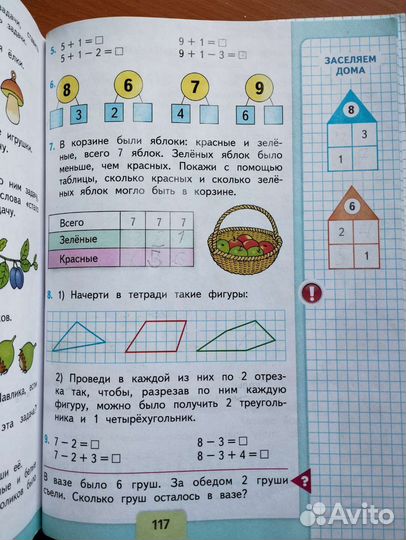 задачи, ста
5. 5 + 1 = □ 9 + 1 = □
5 + 1 − 2 = □ 9 + 1 − 3 = □
ёлки.
6.
8 6 7 9
3 2 4 6
игрушки.
7. В корзине были яблоки: красные и зелё-
ные, всего 7 яблок. Зелёных яблок было
меньше, чем красных. Покажи с помощью
таблицы, сколько красных и сколько зелё-
ных яблок могло быть в корзине.
Всего 7 7 7
Зелёные 1
Красные 5
8. 1) Начерти в тетради такие фигуры:
2) Проведи в каждой из них по 2 отрез-
ка так, чтобы, разрезав по ним каждую
фигуру, можно было получить 2 треуголь-
ника и 1 четырёхугольник.
9. 7 − 2 = □ 8 − 3 = □
7 − 2 + 3 = □ 8 − 3 + 4 = □
В вазе было 6 груш. За обедом 2 груши
съели. Сколько груш осталось в вазе?
117
ЗАСЕЛЯЕМ
ДОМА
8
3
1
6
2
1
!
?
им зада
слова «ста
дачу.
ков.
Павлика, если
эта задача?
ши её.
Avito